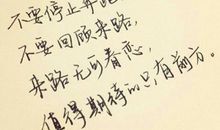 不要停止奔跑
不要回顾来路,
来路无可眷恋,
值得期待的只有前方。